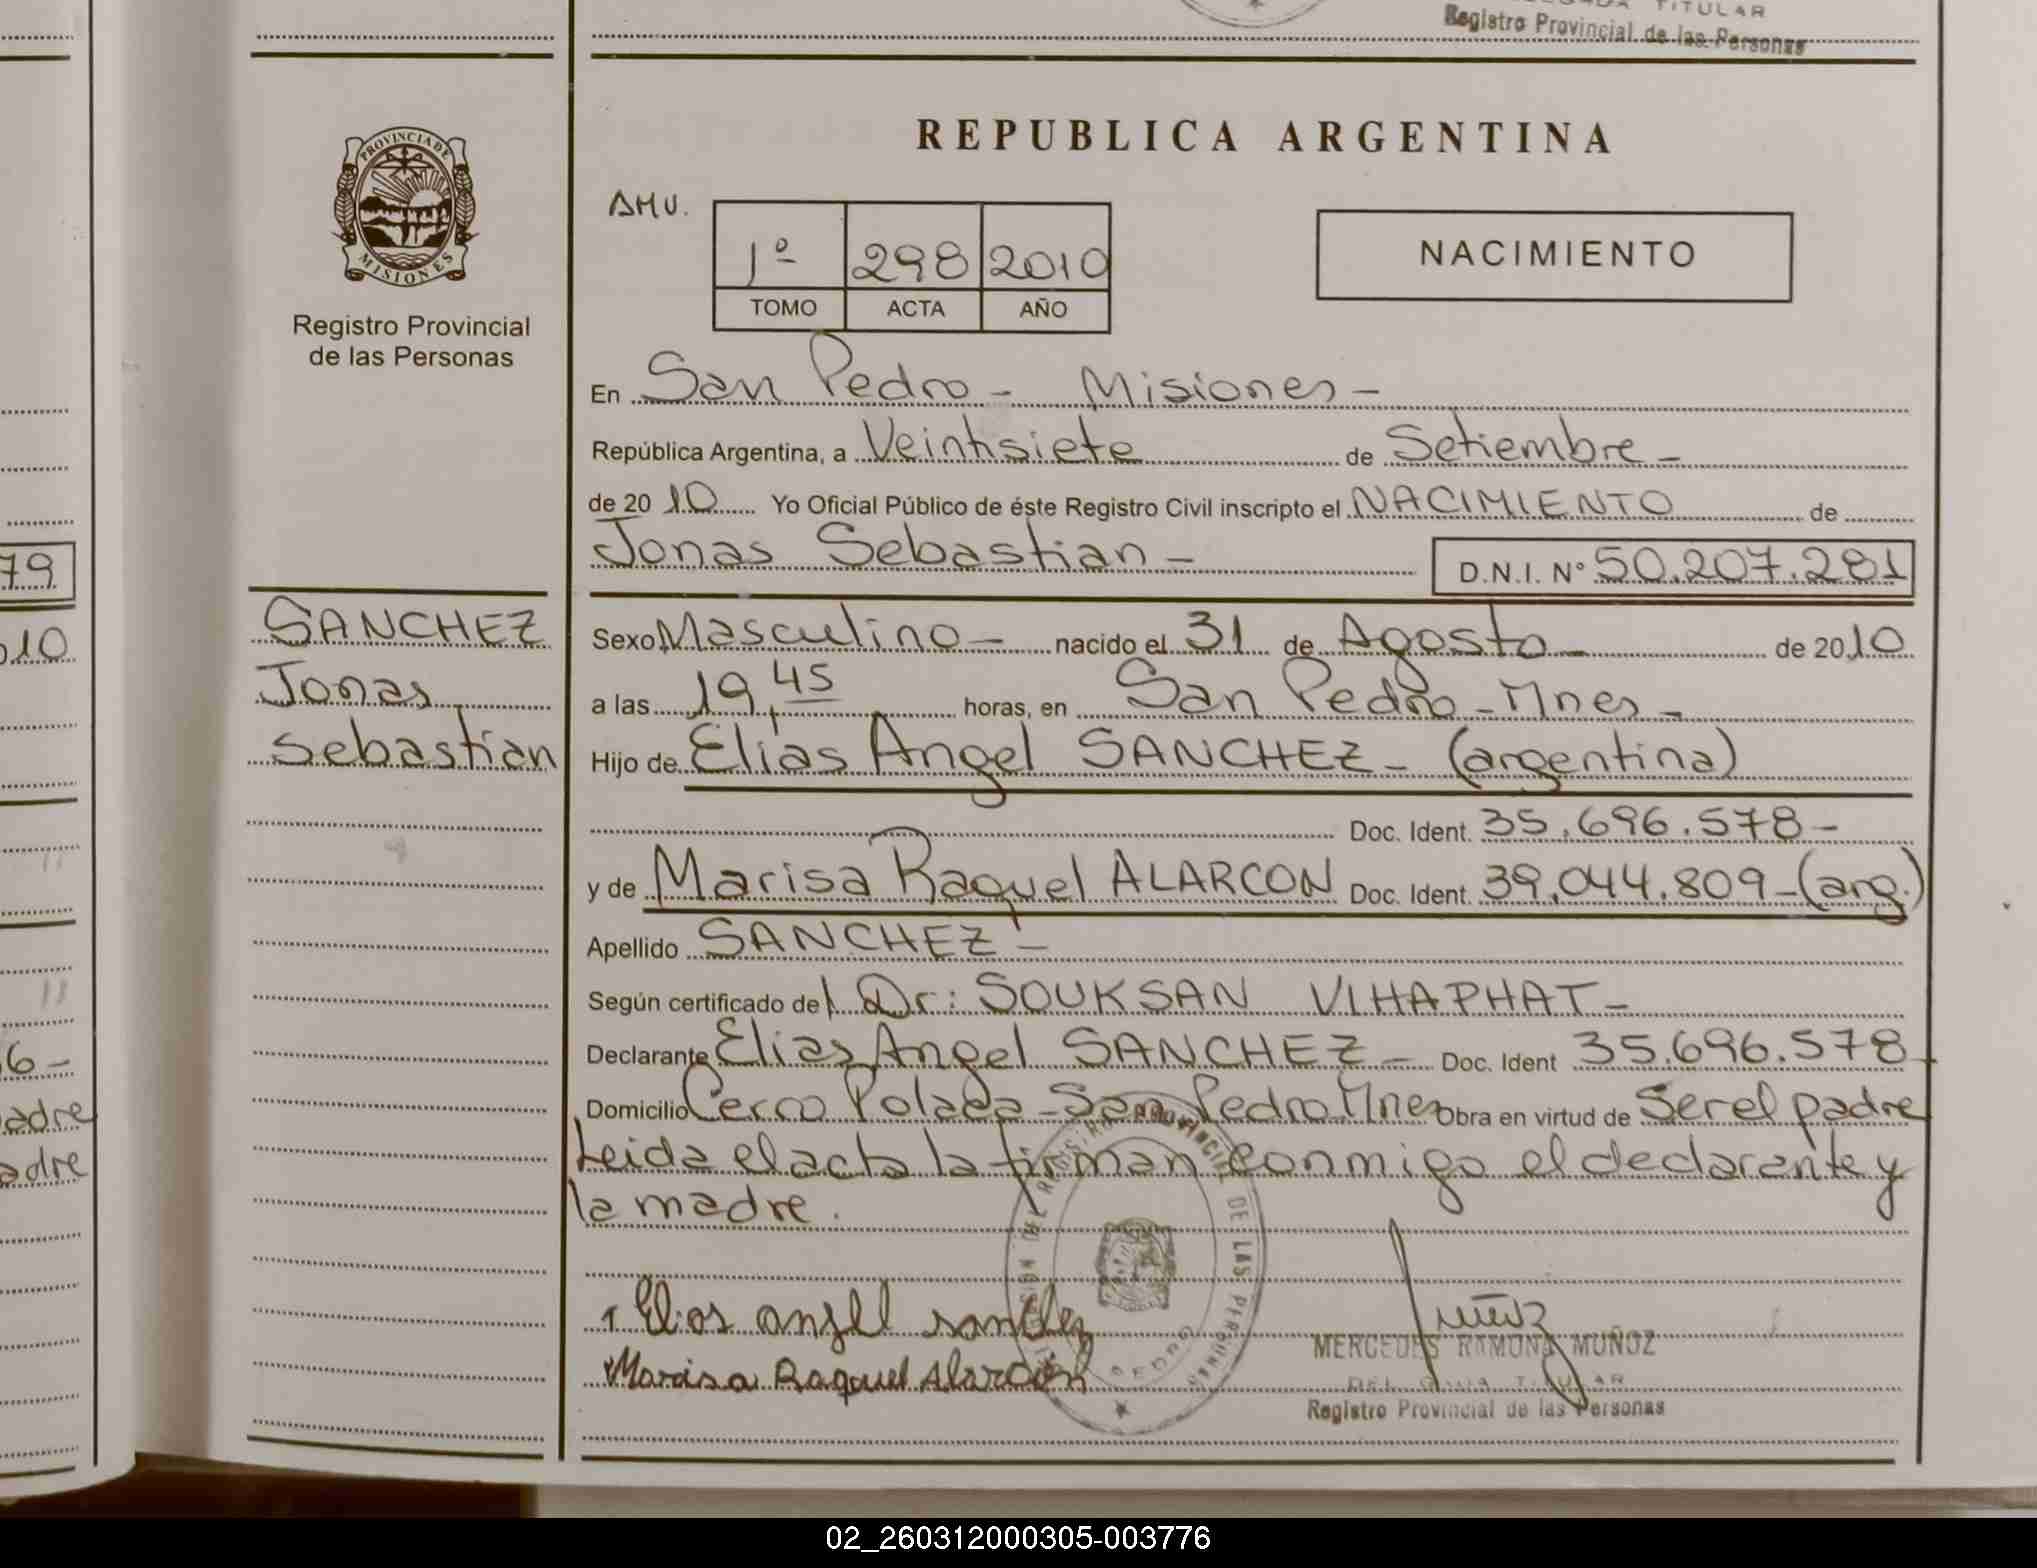 TITULAR
Registro Provincial de las Personas
79
10
6-
adre
adre
PROVINCIA DE
MISIONES
Registro Provincial
de las Personas
SANCHEZ
Jonas
Sebastian
REPUBLICA ARGENTINA
AMU.
1º 298 2010
TOMO ACTA AÑO
NACIMIENTO
En San Pedro - Misiones -
República Argentina, a Veintisiete de Setiembre -
de 2010 Yo Oficial Público de éste Registro Civil inscripto el NACIMIENTO de
Jonas Sebastian - D.N.I. Nº 50.207.281
Sexo Masculino - nacido el 31 de Agosto - de 2010
a las 19,45 horas, en San Pedro - Mnes -
Hijo de Elias Angel SANCHEZ - (argentina)
Doc. Ident. 35.696.578 -
y de Marisa Raquel ALARCON Doc. Ident. 39.044.809 - (arg.)
Apellido SANCHEZ -
Según certificado del Dr: SOUKSAN VIHAPHAT -
Declarante Elias Angel SANCHEZ - Doc. Ident 35.696.578 -
Domicilio Cerro Polada - San Pedro Mnes Obra en virtud de Ser el padre
Leida el acta la firman conmigo el declarante y
la madre.
Elias angel sanchez
Marisa Raquel Alarcón
PROVINCIAL DE LAS PERSONAS
PEDRO
Muñoz
MERCEDES RAMONA MUÑOZ
DELEGADA TITULAR
Registro Provincial de las Personas
02_260312000305-003776